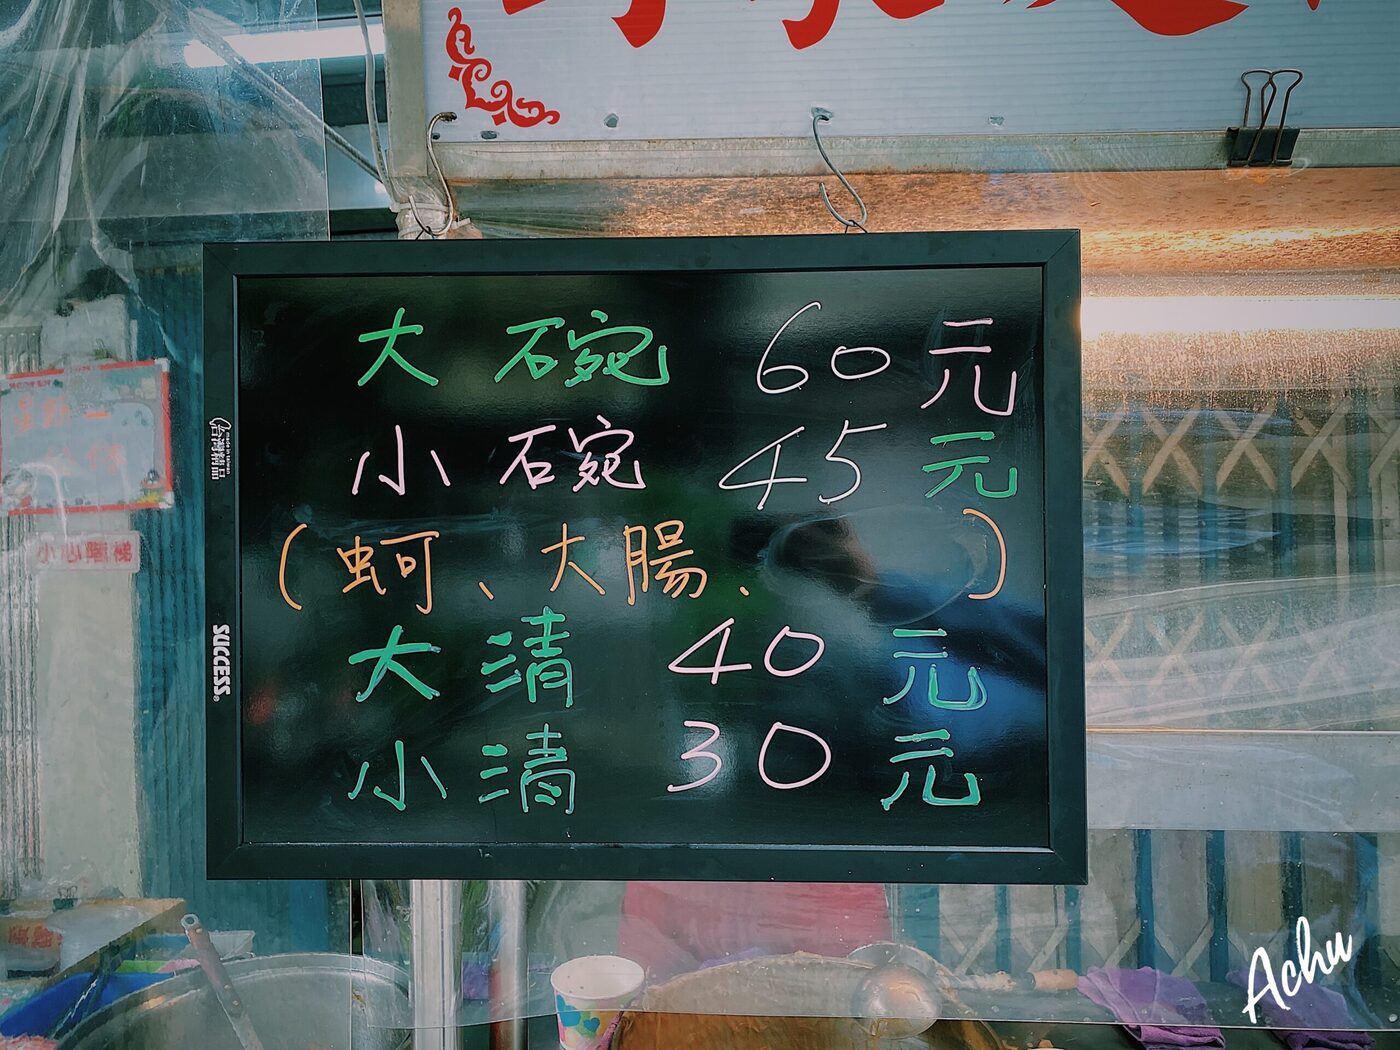 大碗 60元
小碗 45元
(蚵、大腸、 )
大清 40元
小清 30元
made in taiwan
台灣精品
SUCCESS®
小心階梯
Achu